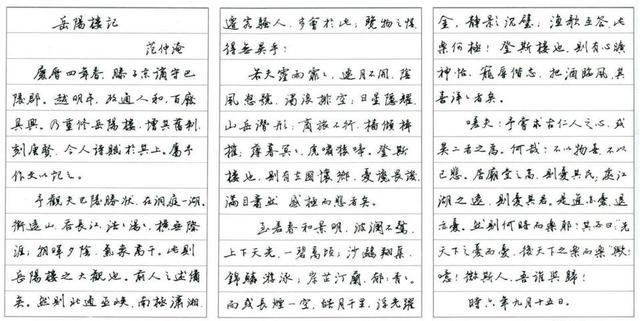 岳陽樓記
范仲淹
慶曆四年春，滕子京謫守巴
陵郡。越明年，政通人和，百廢
具興。乃重修岳陽樓，增其舊制，
刻唐賢、今人詩賦於其上。屬予
作文以記之。
予觀夫巴陵勝狀，在洞庭一湖。
銜遠山，吞長江，浩〻湯〻，橫無際
涯；朝暉夕陰，氣象萬千。此則
岳陽樓之大觀也。前人之述備
矣。然則北通巫峽，南極瀟湘，
遷客騷人，多會於此；覽物之情，
得無異乎？
若夫霪雨霏〻，連月不開，陰
風怒號，濁浪排空；日星隱耀，
山岳潛形；商旅不行，檣傾楫
摧；薄暮冥〻，虎嘯猿啼。登斯
樓也，則有去國懷鄉，憂讒畏譏，
滿目蕭然，感極而悲者矣。
至若春和景明，波瀾不驚，
上下天光，一碧萬頃；沙鷗翔集，
錦鱗游泳；岸芷汀蘭，郁〻青〻。
而或長煙一空，皓月千里，浮光躍
金，靜影沉璧；漁歌互答，此
樂何極！登斯樓也，則有心曠
神怡，寵辱偕忘，把酒臨風，其
喜洋〻者矣。
嗟夫！予嘗求古仁人之心，或
異二者之為。何哉？不以物喜，不以
己悲。居廟堂之高，則憂其民，處江
湖之遠，則憂其君。是進亦憂，退
亦憂。然則何時而樂耶？其必曰"先
天下之憂而憂，後天下之樂而樂"歟！
噫！微斯人，吾誰與歸！
時六年九月十五日。